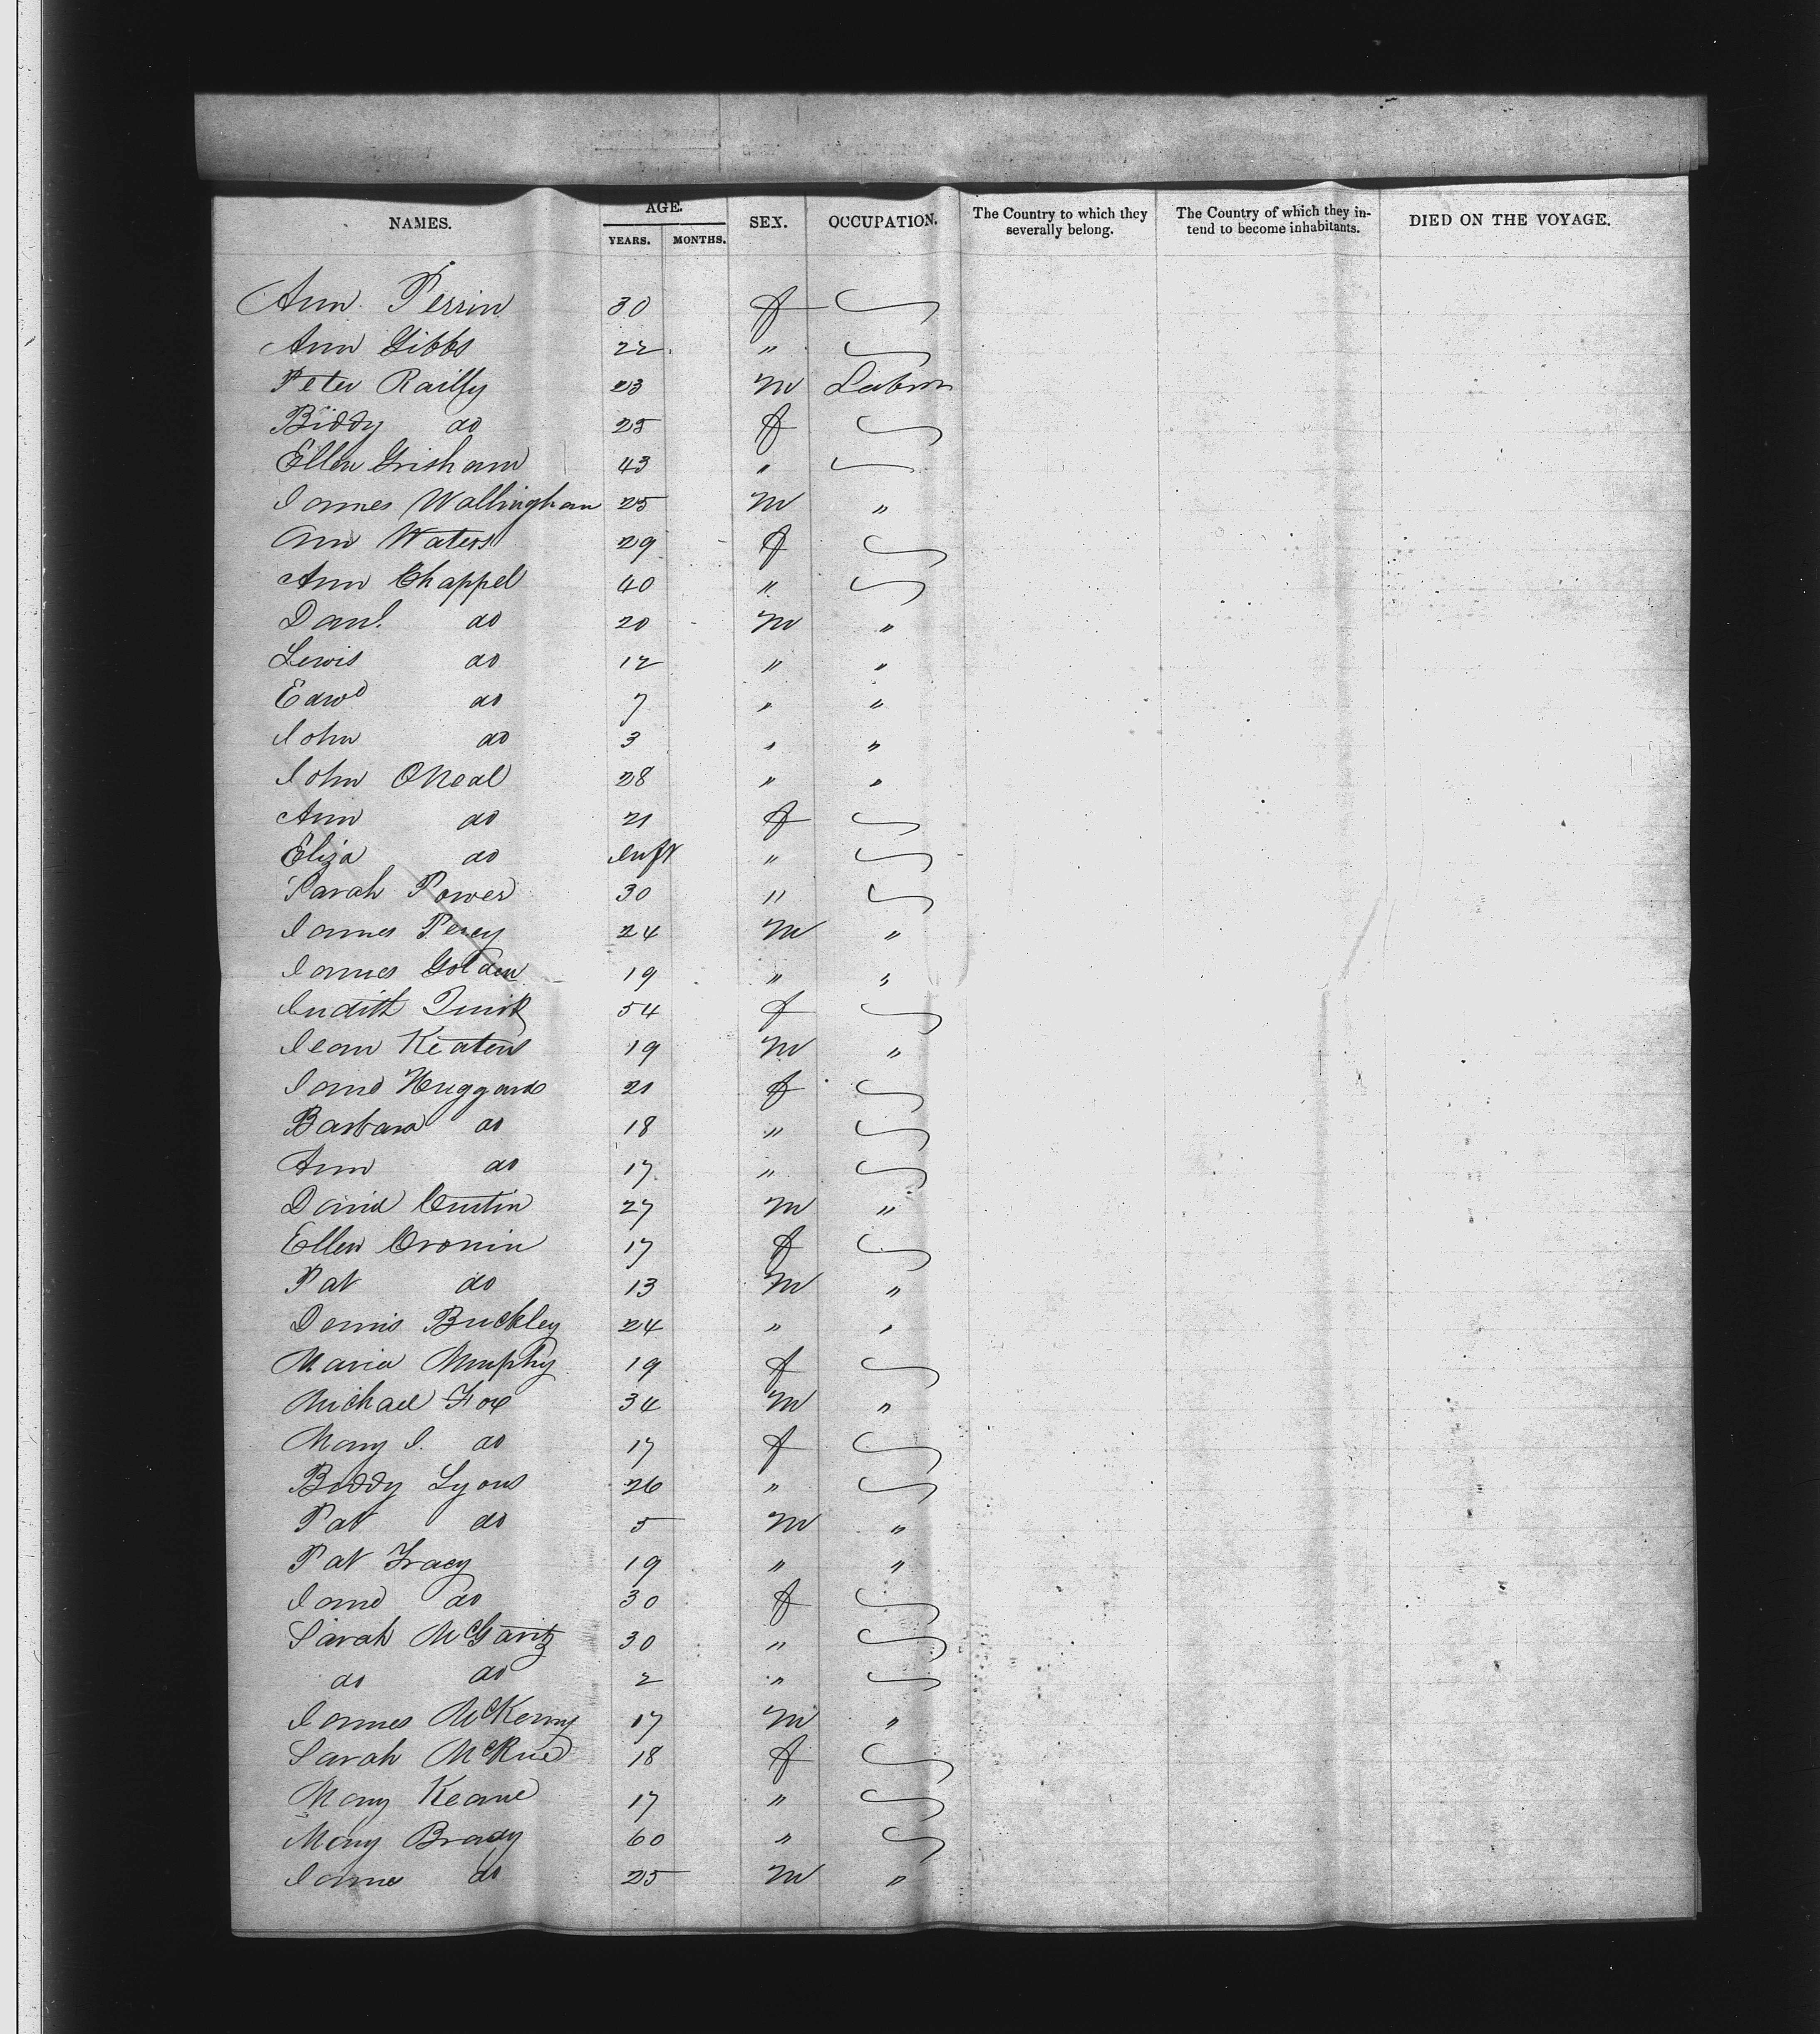 NAMES. AGE. YEARS. MONTHS. SEX. OCCUPATION. The Country to which they severally belong. The Country of which they intend to become inhabitants. DIED ON THE VOYAGE.
Ann Perrin 30 f
Ann Gibbs 22 "
Peter Railly 23 M Labor
Biddy do 25 f
Ellen Grisham 43 "
James Wallingham 25 M "
Ann Waters 29 f
Ann Chappel 40 "
Danl. do 20 M "
Lewis do 12 " "
Edwd do 7 " "
John do 3 " "
John ONeal 28 " "
Ann do 21 f
Eliza do Inft "
Sarah Power 30 "
James Percy 24 M "
James Golden 19 " "
Judith Quirk 54 f
Jean Keatens 19 M "
Jane Huggard 21 f
Barbara do 18 "
Ann do 17 "
David Custin 27 M "
Ellen Cronin 17 f
Pat do 13 M "
Dennis Buckley 24 " "
Maria Murphy 19 f
Michael Fox 34 M "
Mary J. do 17 f
Biddy Lyons 26 "
Pat do 5 M "
Pat Tracy 19 " "
Jane do 30 f
Sarah McGarity 30 "
do do 2 "
James McKenny 17 M "
Sarah McRue 18 f
Mary Keane 17 "
Mary Brady 60 "
James do 25 M "